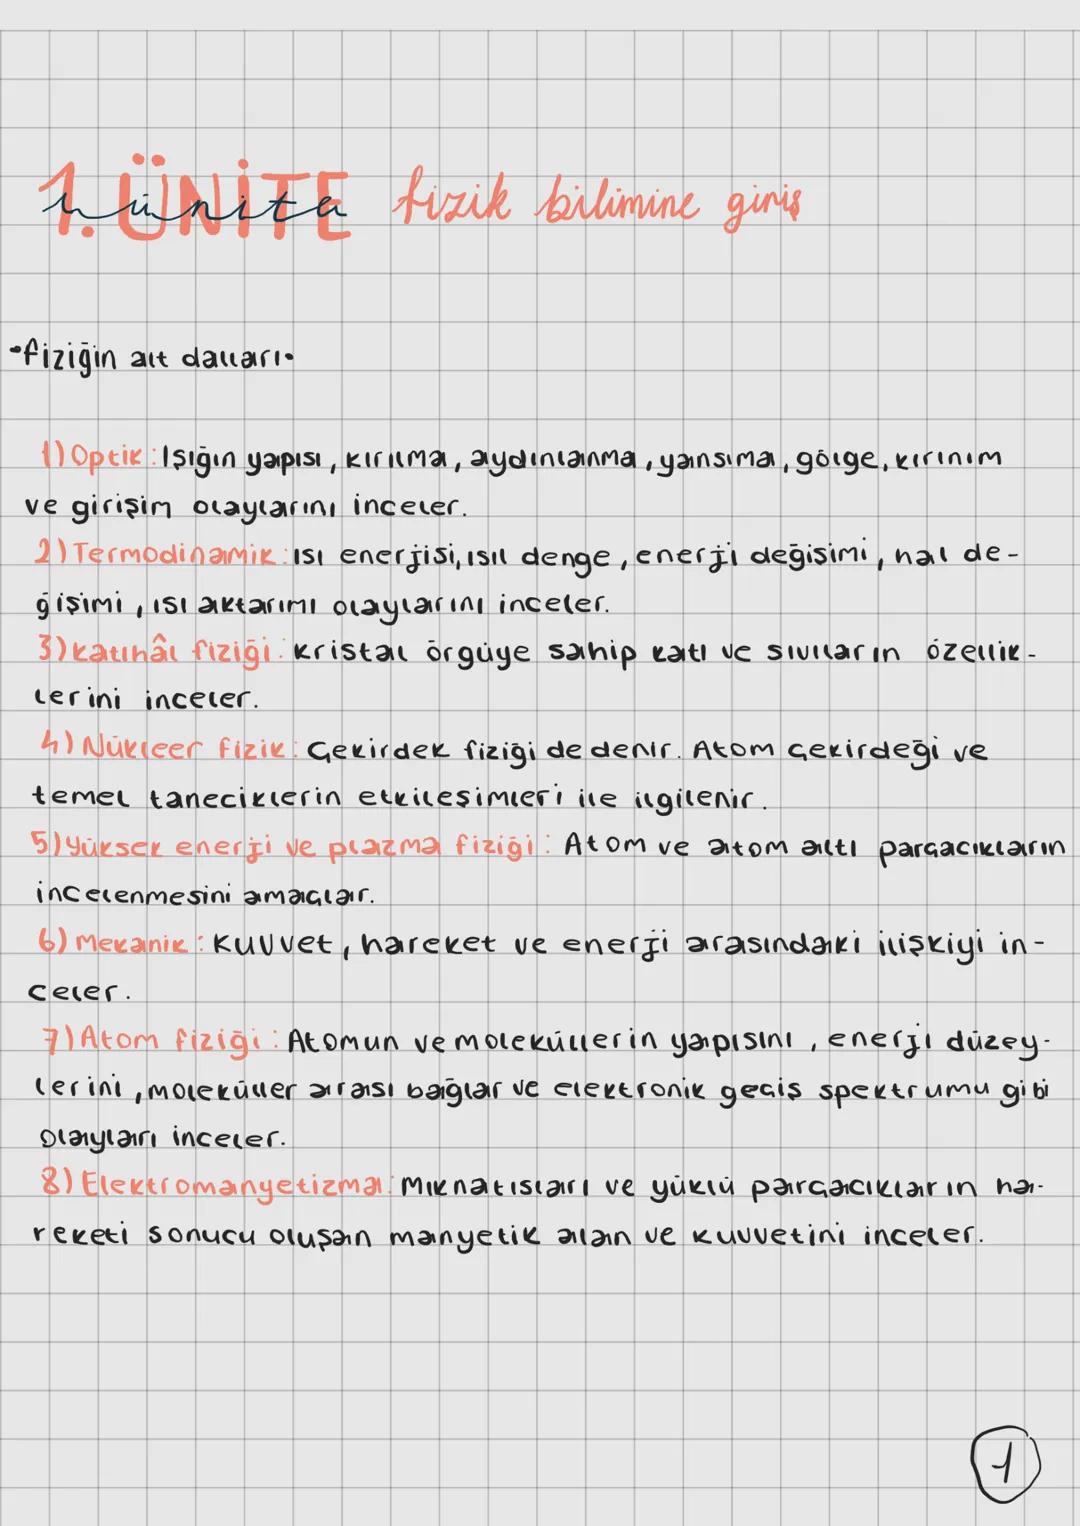 1. ÜNİTE fizik bilimine giriş
1. ünite
•fiziğin alt dalları•
1) Optik: Işığın yapısı, kırılma, aydınlanma, yansıma, gölge, kırınım
ve girişim olaylarını inceler.
2) Termodinamik: ısı enerjisi, ısıl denge, enerji değişimi, hal de-
ğişimi, ısı aktarımı olaylarını inceler.
3) katıhâl fiziği: kristal örgüye sahip katı ve sıvıların özellik-
lerini inceler.
4) Nükleer fizik: Çekirdek fiziği de denir. Atom çekirdeği ve
temel taneciklerin etkileşimleri ile ilgilenir.
5) Yüksek enerji ve plazma fiziği: Atom ve atom altı parçacıkların
incelenmesini amaçlar.
6) Mekanik: Kuvvet, hareket ve enerji arasındaki ilişkiyi in-
celer.
7) Atom fiziği: Atomun ve moleküllerin yapısını, enerji düzey-
lerini, moleküller arası bağlar ve elektronik geçiş spektrumu gibi
olayları inceler.
8) Elektromanyetizma: Mıknatısları ve yüklü parçacıkların ha-
reketi sonucu oluşan manyetik alan ve kuvvetini inceler.
1